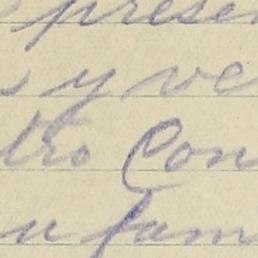 presen
s y ve
tro Con
u fam